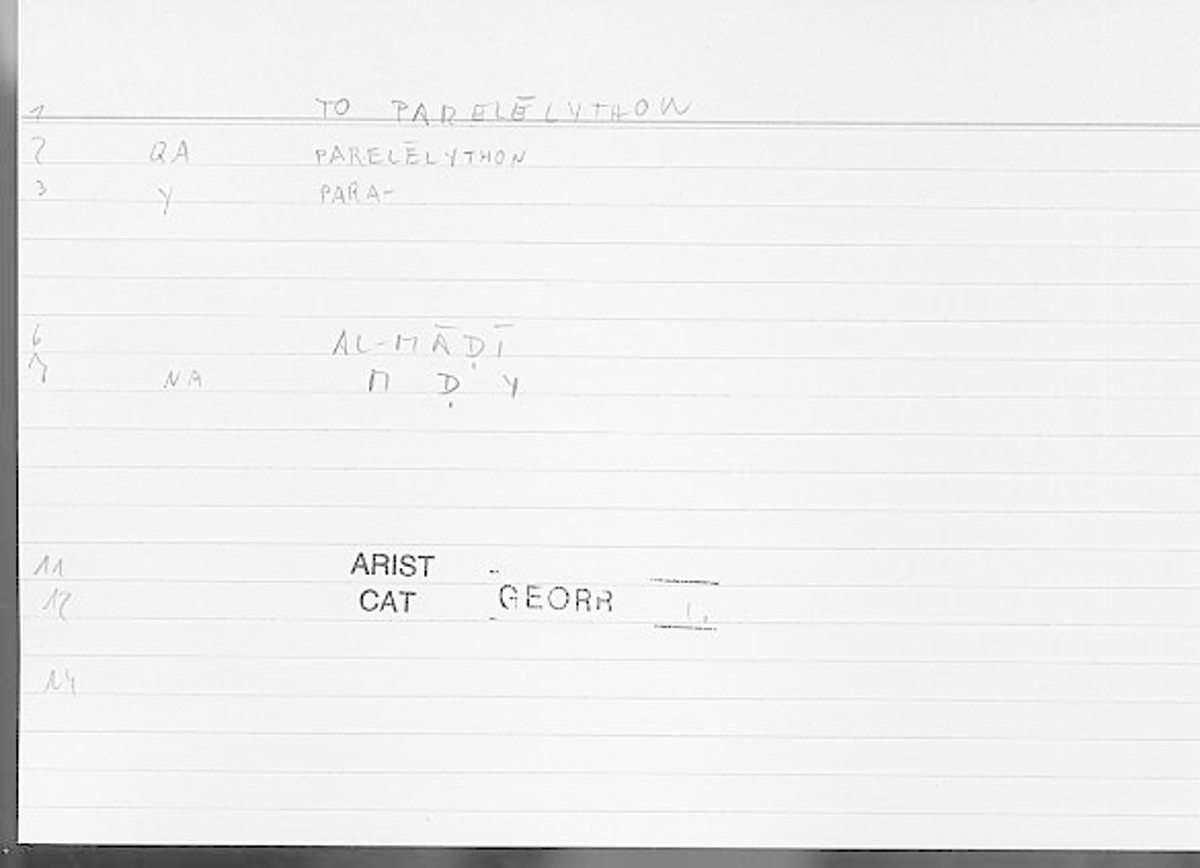 1 TO PARELĒLYTHON
2 QA PARELĒLYTHON
3 Y PARA-
6 AL-MĀḌĪ
7 NA M Ḍ Y
11 ARIST
12 CAT GEORR 1,
14